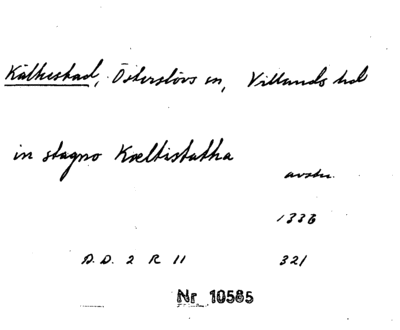 Kälkestad, Österslövs sn, Villands hd
in stagno Kæltistatha
avskr.
1336
D.D. 2 R 11 321
Nr 10585